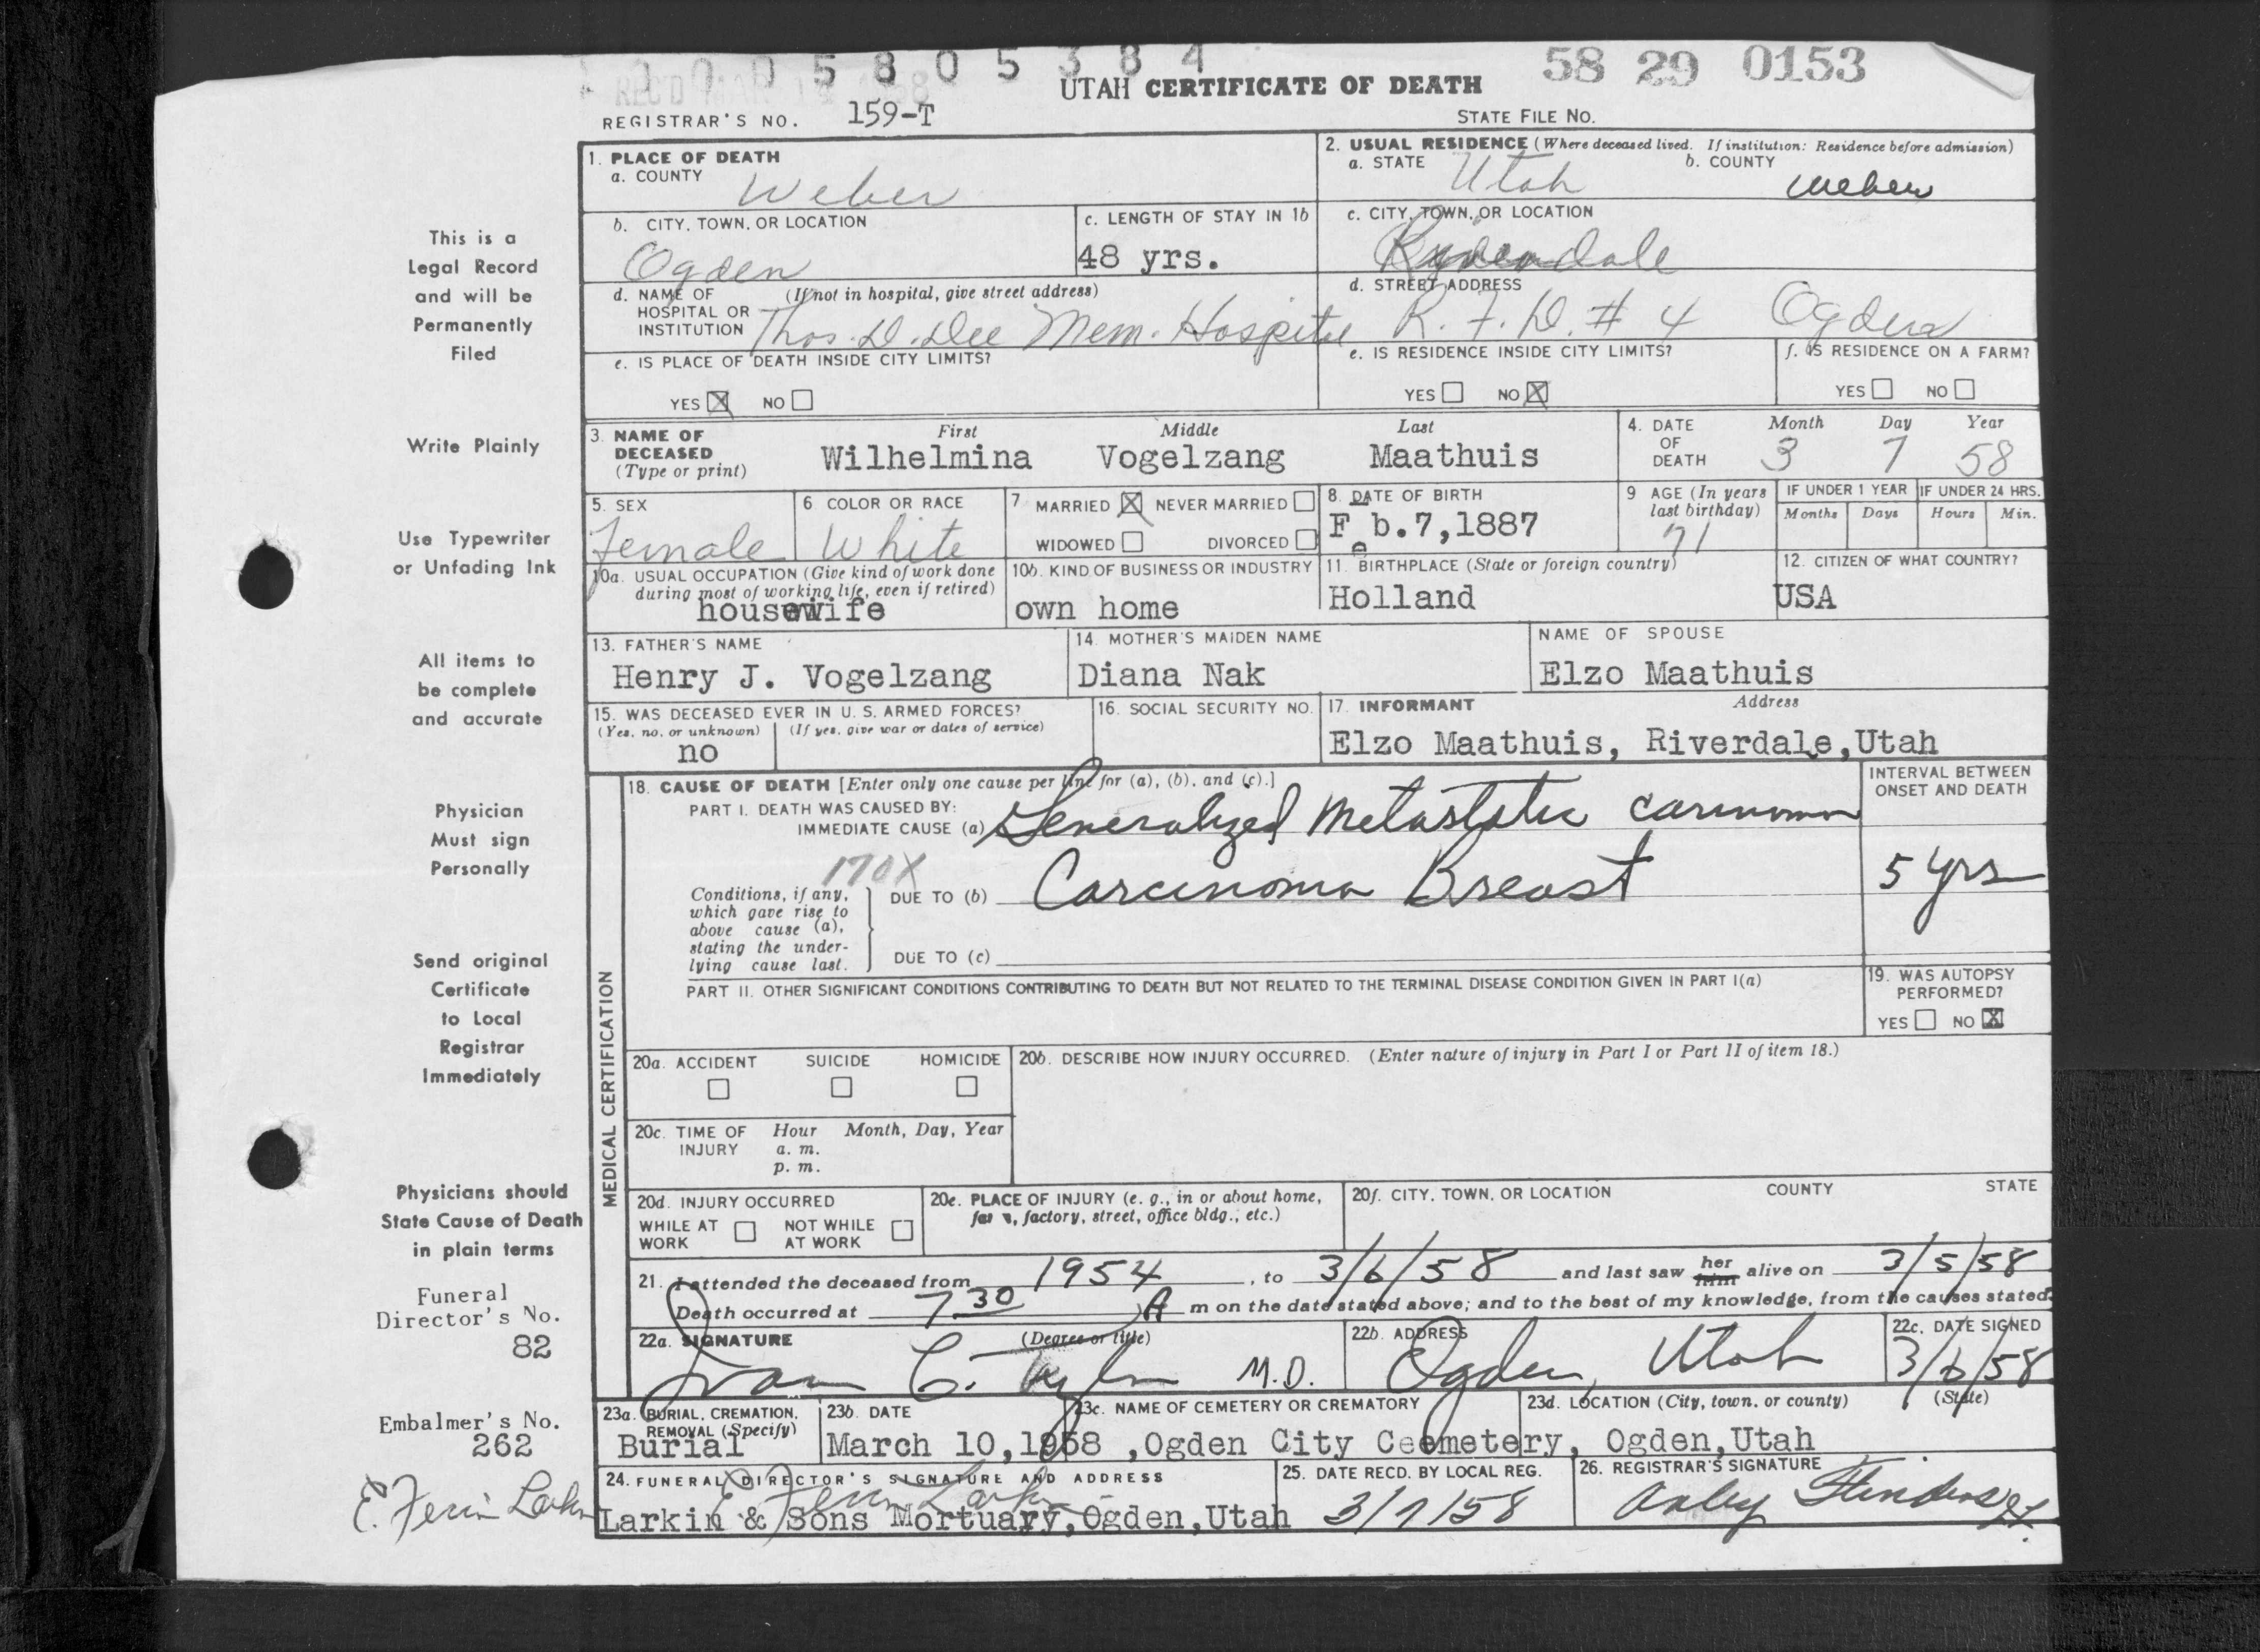 1005805384
58 29 0153
REC'D MAR 1958
UTAH CERTIFICATE OF DEATH
REGISTRAR'S NO. 159-T
STATE FILE NO.
1. PLACE OF DEATH
a. COUNTY Weber
2. USUAL RESIDENCE (Where deceased lived. If institution: Residence before admission)
a. STATE Utah b. COUNTY Weber
b. CITY, TOWN, OR LOCATION Ogden
c. LENGTH OF STAY IN 1b 48 yrs.
c. CITY, TOWN, OR LOCATION Riverdale
d. NAME OF HOSPITAL OR INSTITUTION (If not in hospital, give street address) Thos. D. Dee Mem. Hospital
d. STREET ADDRESS R. F. D. # 4 Ogden
e. IS PLACE OF DEATH INSIDE CITY LIMITS?
YES ☒ NO ☐
e. IS RESIDENCE INSIDE CITY LIMITS?
YES ☐ NO ☒
f. IS RESIDENCE ON A FARM?
YES ☐ NO ☐
3. NAME OF DECEASED (Type or print)
First Middle Last
Wilhelmina Vogelzang Maathuis
4. DATE OF DEATH
Month Day Year
3 7 58
5. SEX Female
6 COLOR OR RACE White
7 MARRIED ☒ NEVER MARRIED ☐
WIDOWED ☐ DIVORCED ☐
8. DATE OF BIRTH
Feb.7,1887
9 AGE (In years last birthday) 71
IF UNDER 1 YEAR
Months Days
IF UNDER 24 HRS.
Hours Min.
10a. USUAL OCCUPATION (Give kind of work done during most of working life, even if retired)
housewife
10b. KIND OF BUSINESS OR INDUSTRY
own home
11. BIRTHPLACE (State or foreign country)
Holland
12. CITIZEN OF WHAT COUNTRY?
USA
13. FATHER'S NAME
Henry J. Vogelzang
14. MOTHER'S MAIDEN NAME
Diana Nak
NAME OF SPOUSE
Elzo Maathuis
15. WAS DECEASED EVER IN U. S. ARMED FORCES?
(Yes, no, or unknown) (If yes, give war or dates of service)
no
16. SOCIAL SECURITY NO.
17. INFORMANT Address
Elzo Maathuis, Riverdale,Utah
18. CAUSE OF DEATH [Enter only one cause per line for (a), (b), and (c).]
INTERVAL BETWEEN ONSET AND DEATH
PART I. DEATH WAS CAUSED BY:
IMMEDIATE CAUSE (a) Generalized Metastatic Carcinoma
170X
Conditions, if any, which gave rise to above cause (a), stating the underlying cause last.
DUE TO (b) Carcinoma Breast
5 yrs
DUE TO (c)
PART II. OTHER SIGNIFICANT CONDITIONS CONTRIBUTING TO DEATH BUT NOT RELATED TO THE TERMINAL DISEASE CONDITION GIVEN IN PART I(a)
19. WAS AUTOPSY PERFORMED?
YES ☐ NO ☒
MEDICAL CERTIFICATION
20a. ACCIDENT SUICIDE HOMICIDE
20b. DESCRIBE HOW INJURY OCCURRED. (Enter nature of injury in Part I or Part II of item 18.)
20c. TIME OF INJURY Hour Month, Day, Year
a. m.
p. m.
20d. INJURY OCCURRED
WHILE AT WORK ☐ NOT WHILE AT WORK ☐
20e. PLACE OF INJURY (e. g., in or about home, farm, factory, street, office bldg., etc.)
20f. CITY, TOWN, OR LOCATION COUNTY STATE
21. I attended the deceased from 1954, to 3/6/58 and last saw her him alive on 3/5/58
Death occurred at 7 30 A m on the date stated above; and to the best of my knowledge, from the causes stated.
22a. SIGNATURE (Degree or title)
M.D.
22b. ADDRESS
Ogden, Utah
22c. DATE SIGNED
3/6/58
23a. BURIAL, CREMATION, REMOVAL (Specify)
Burial
23b. DATE
March 10,1958
23c. NAME OF CEMETERY OR CREMATORY
,Ogden City Ceemetery,
23d. LOCATION (City, town, or county) (State)
Ogden,Utah
24. FUNERAL DIRECTOR'S SIGNATURE AND ADDRESS
E. Ferrin Larkin
Larkin & Sons Mortuary,Ogden,Utah
25. DATE RECD. BY LOCAL REG.
3/7/58
26. REGISTRAR'S SIGNATURE
This is a
Legal Record
and will be
Permanently
Filed
Write Plainly
Use Typewriter
or Unfading Ink
All items to
be complete
and accurate
Physician
Must sign
Personally
Send original
Certificate
to Local
Registrar
Immediately
Physicians should
State Cause of Death
in plain terms
Funeral
Director's No.
82
Embalmer's No.
262
E. Ferrin Larkin